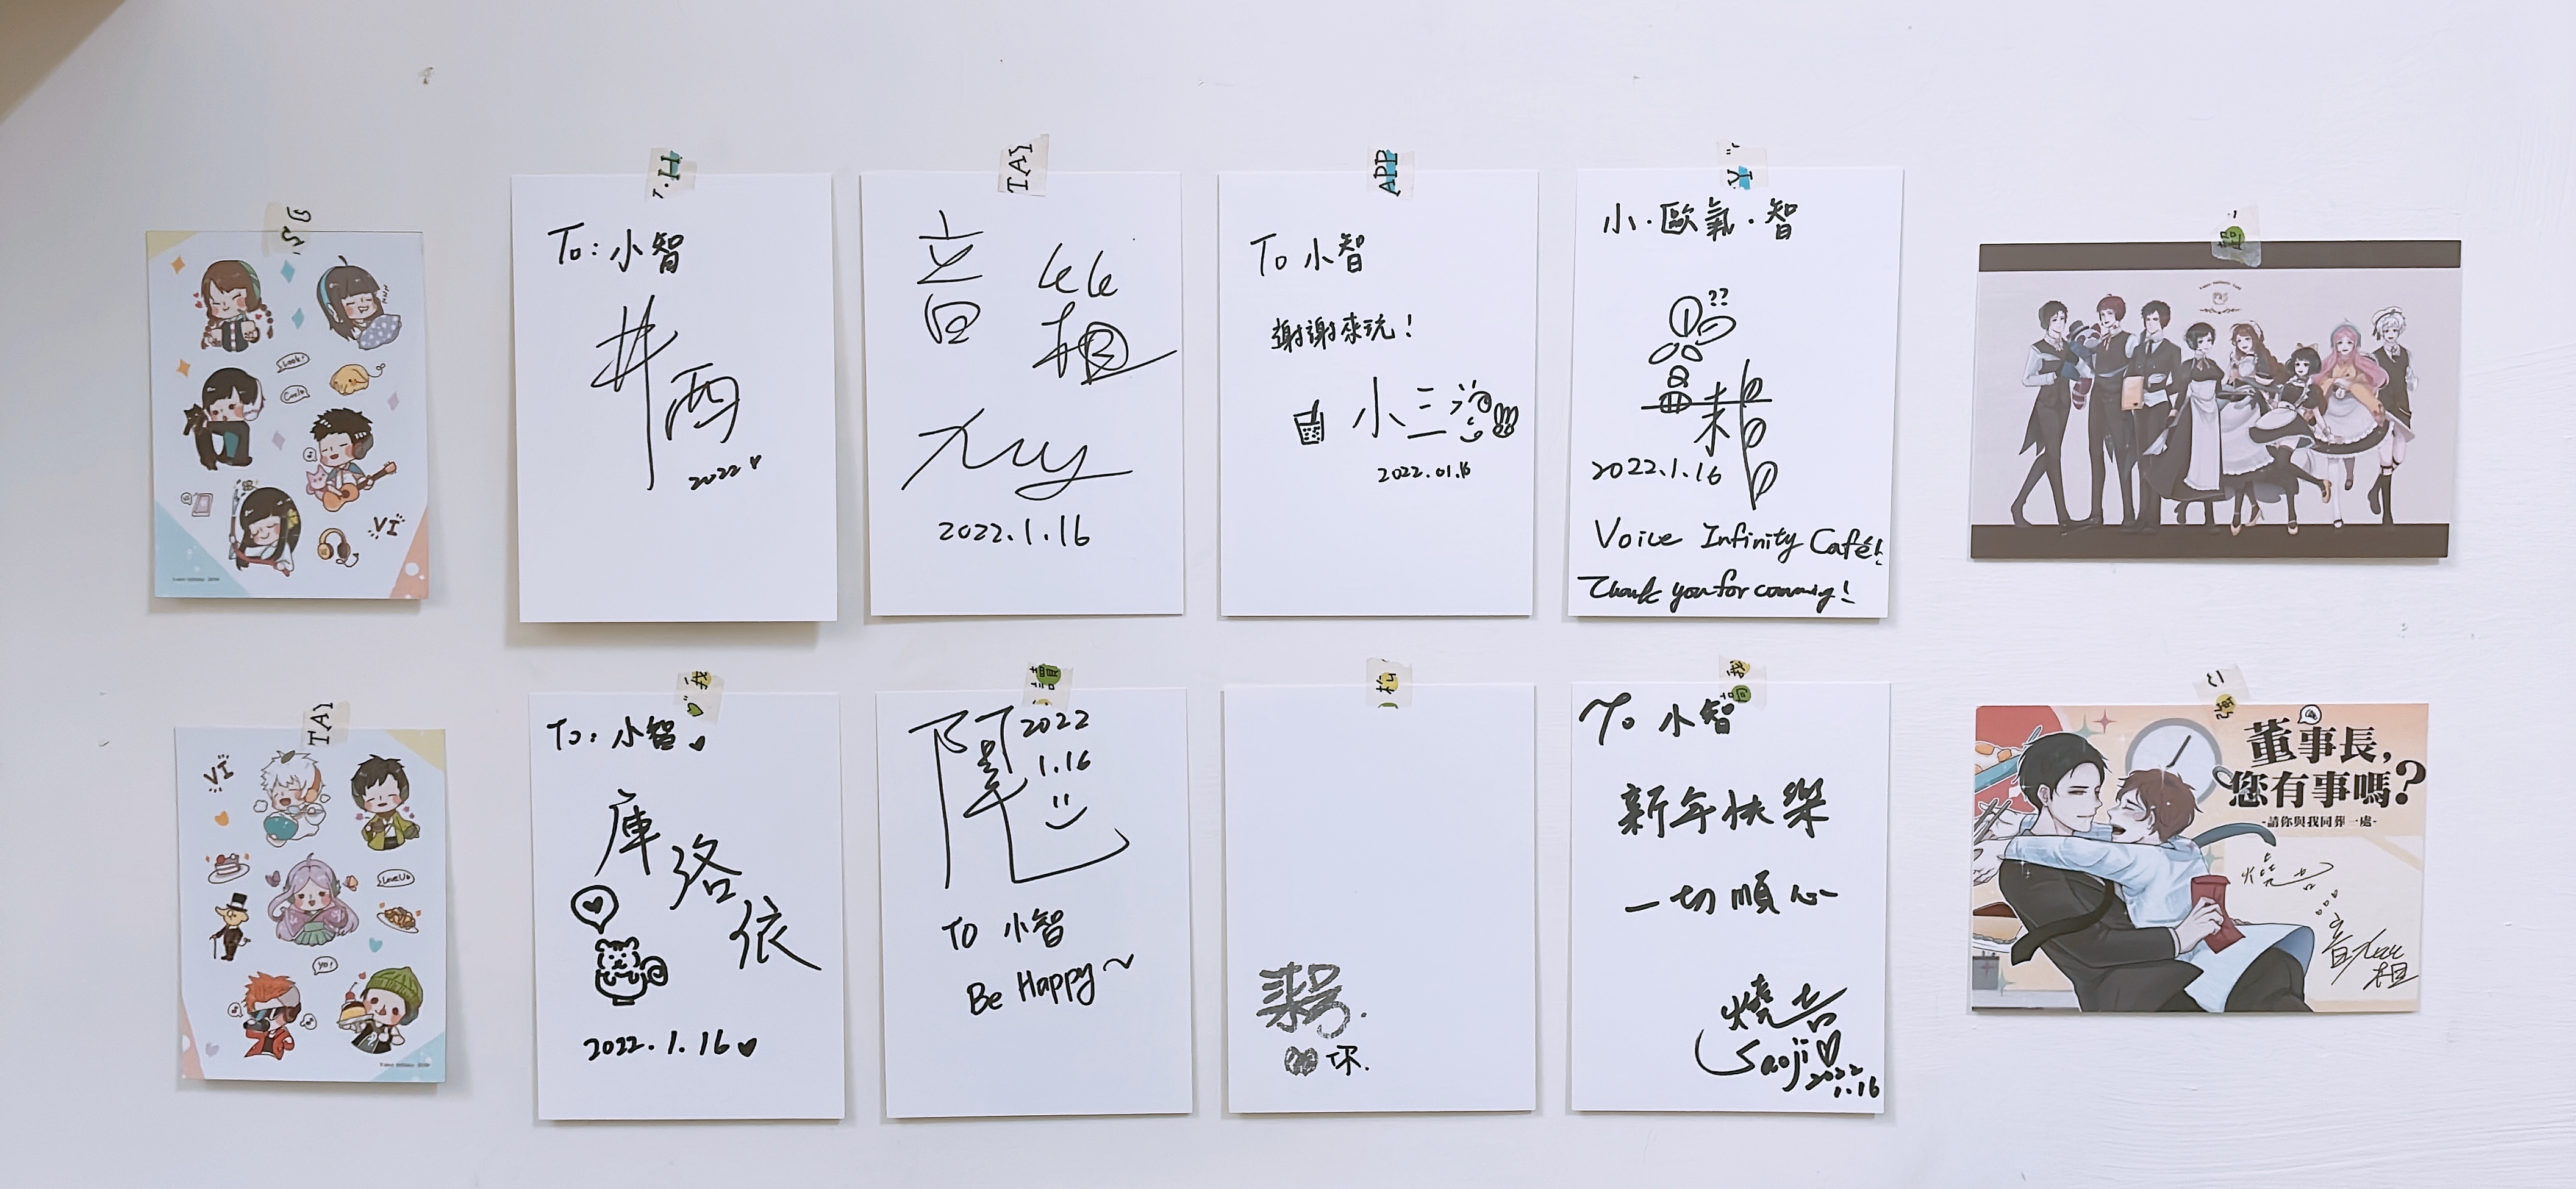 Look!
Cool!
VI
To: 小智
井西
2022
2022.1.16
To 小智
謝謝來玩！
小三
2022.01.16
小·歐氣·智
??
2022.1.16
Voice Infinity Café!
Thank you for comming!
TAY
APP
VI
Love U
yo!
TAY
To: 小智
庫洛依
2022.1.16
2022
1.16
To 小智
Be Happy~
To 小智
新年快樂
一切順心
燒吉
Saoji
2022
1.16
董事長，
您有事嗎？
-請你與我同葬一處-